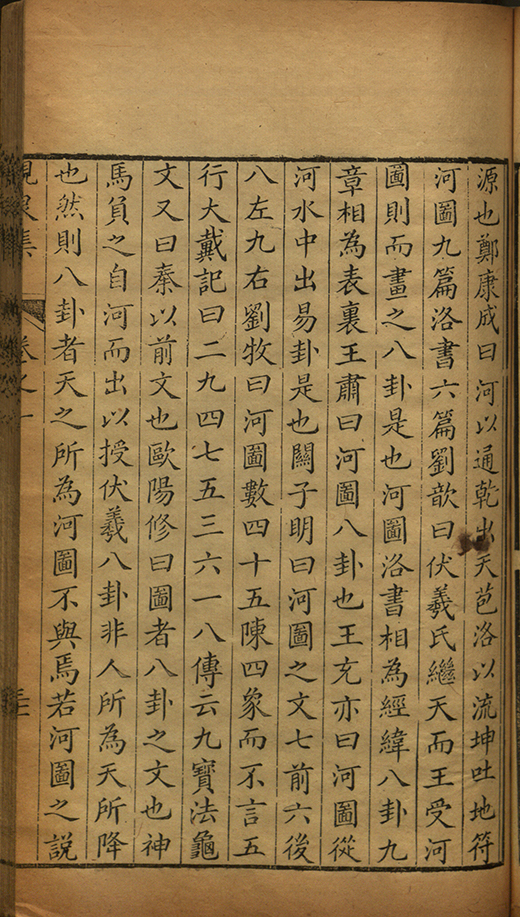 源也鄭康成曰河以通乾出天苞洛以流坤吐地符
河圖九篇洛書六篇劉歆曰伏羲氏繼天而王受河
圖則而畫之八卦是也河圖洛書相為經緯八卦九
章相為表裏王肅曰河圖八卦也王充亦曰河圖從
河水中出易卦是也關子明曰河圖之文七前六後
八左九右劉牧曰河圖數四十五陳四象而不言五
行大戴記曰二九四七五三六一八傳云九寶法龜
文又曰秦以前文也歐陽修曰圖者八卦之文也神
馬負之自河而出以授伏羲八卦非人所為天所降
也然則八卦者天之所為河圖不與焉若河圖之說
集 卷之一